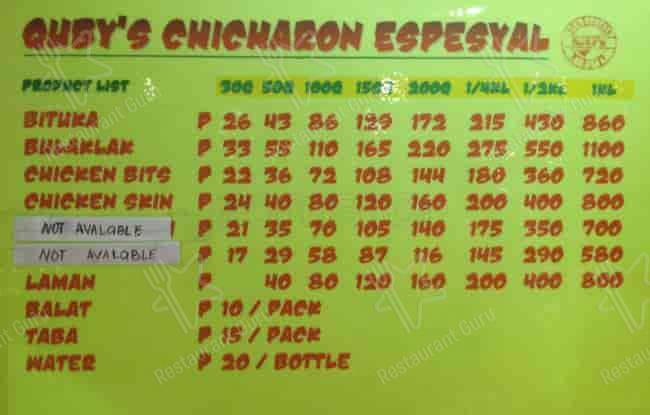 QUBY'S CHICHARON ESPESYAL
PRODUCT LIST 30G 50G 100G 150G 200G 1/4KL 1/2KL 1KL
BITUKA ₱ 26 43 86 129 172 215 430 860
BULAKLAK ₱ 33 55 110 165 220 275 550 1100
CHICKEN BITS ₱ 22 36 72 108 144 180 360 720
CHICKEN SKIN ₱ 24 40 80 120 160 200 400 800
NOT AVALABLE ₱ 21 35 70 105 140 175 350 700
NOT AVALABLE ₱ 17 29 58 87 116 145 290 580
LAMAN 40 80 120 160 200 400 800
BALAT ₱ 10 / PACK
TABA ₱ 15 / PACK
WATER ₱ 20 / BOTTLE
Restaurant Guru
Restaurant Guru
Restaurant Guru